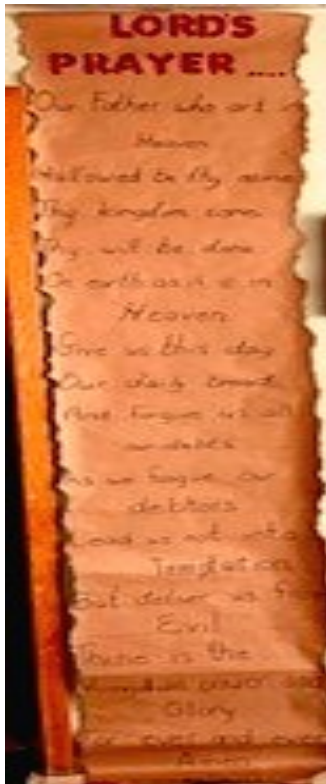 LORD'S
PRAYER ....
Our Father who art in
Heaven
Hallowed be thy name
Thy kingdom come
Thy will be done
On earth as it is in
Heaven
Give us this day
Our daily bread
And forgive us all
our debts
As we forgive our
debtors
Lead us not into
Temptation
But deliver us from
Evil
Thine is the
Kingdom power and
Glory
For ever and ever
Amen